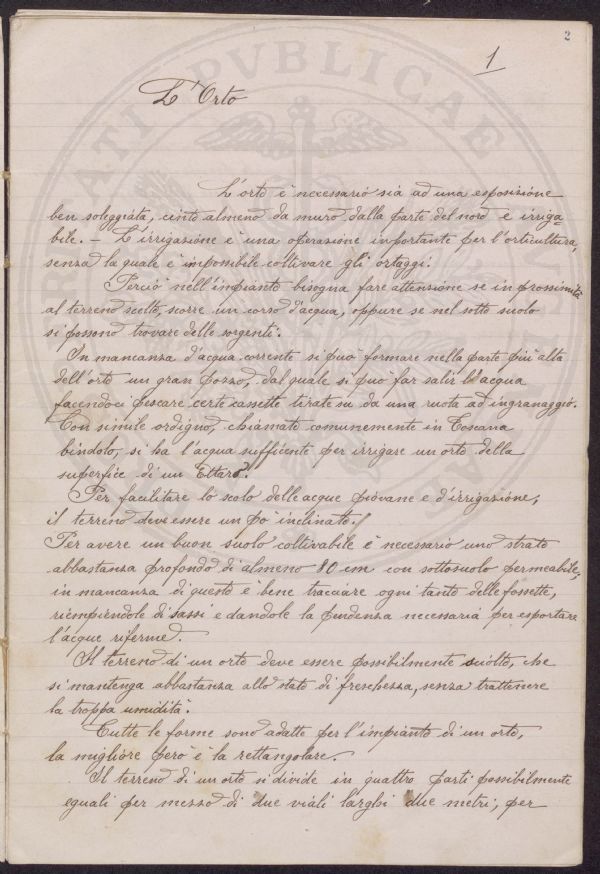 2
1
L'Orto
L'orto è necessario sia ad una esposizione
ben soleggiata, cinto almeno da muro dalla parte del nord e irriga-
bile. — L'irrigasione è una operasione importante per l'orticultura,
senza la quale è impossibile coltivare gli ortaggi.
Perciò nell'impianto bisogna fare attensione se in prossimità
al terreno scelto, scorre un corso d'acqua, oppure se nel sotto suolo
si possono trovare delle sorgenti.
In mancanza d'acqua corrente si può formare nella parte più alta
dell'orto un gran pozzo, dal quale si può far salir l'acqua
facendoci pescare certe cassette tirate su da una ruota ad ingranaggio.
Con simile ordigno, chiamato comunemente in Toscana
bindolo, si ha l'acqua sufficente per irrigare un orto della
superfice di un Ettaro.
Per facilitare lo scolo delle acque piovane e d'irrigazione,
il terreno deve essere un po' inclinato.
Per avere un buon suolo coltivabile è necessario uno strato
abbastanza profondo di almeno 80 cm con sottosuolo permeabile;
in mancanza di questo è bene tracciare ogni tanto delle fossette,
riempiendole di sassi e dandole la pendenza necessaria per esportare
l'acque riferme.
Il terreno di un orto deve essere possibilmente sciolto, che
si mantenga abbastanza allo stato di freschessa, senza trattenere
la troppa umidità.
Tutte le forme sono adatte per l'impianto di un orto,
la migliore però è la rettangolare.
Il terreno di un orto si divide in quattro parti possibilmente
eguali per messo di due viali larghi due metri; per